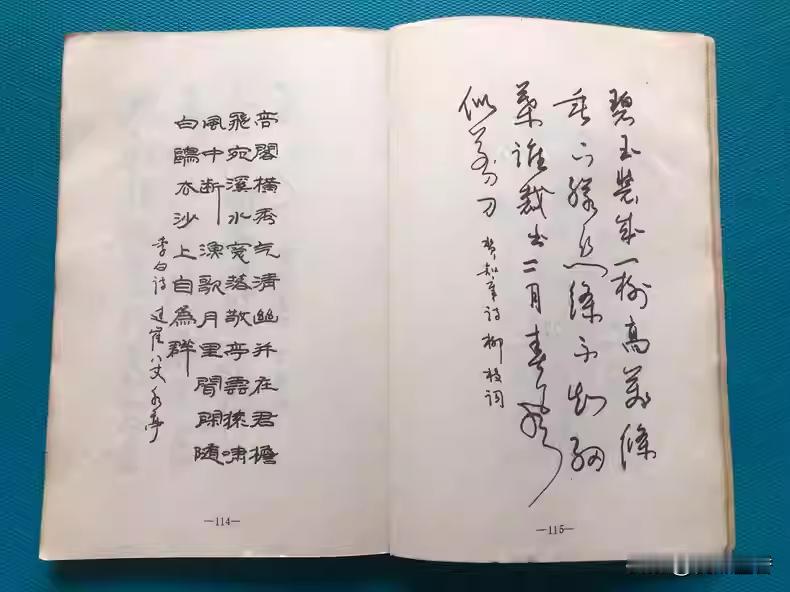 高閣橫秀气清幽并在君檐
飛宛溪水窓落敬亭雲猿嘯
風中断漁歌月里聞閑随
白鷗去沙上自為群
李白诗 过崔八丈水亭
—114—
碧玉裝成一樹高萬條
垂下綠絲絛不知細
葉誰裁出二月春風
似剪刀 賀知章诗 柳枝词
—115—